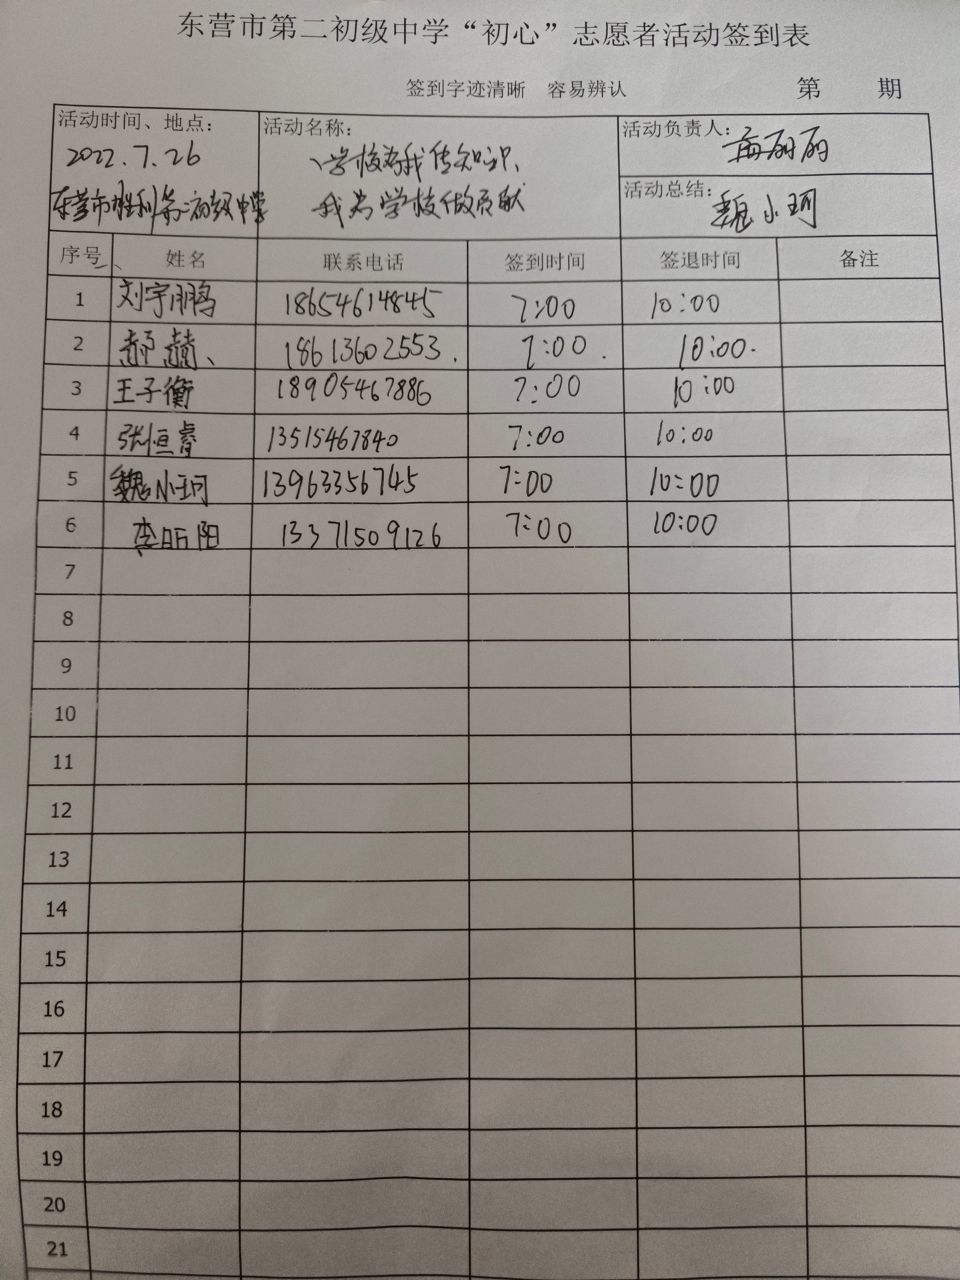 东营市第二初级中学“初心”志愿者活动签到表
签到字迹清晰 容易辨认 第 期
活动时间、地点: 活动名称: 活动负责人:
2022.7.26 学校为我传知识, 丽丽
东营市胜利第二初级中学 我为学校做贡献 活动总结: 魏小珂
序号 姓名 联系电话 签到时间 签退时间 备注
1 刘宇鹏 18654614845 7:00 10:00
2 郝 18613602553. 7:00. 10:00.
3 王子衡 18905467886 7:00 10:00
4 张恒睿 13515467840 7:00 10:00
5 魏小珂 13963356745 7:00 10:00
6 李昕阳 13371509126 7:00 10:00
7
8
9
10
11
12
13
14
15
16
17
18
19
20
21